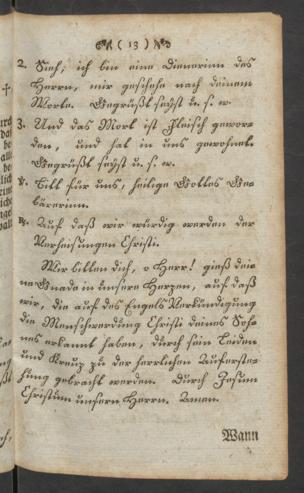 ( 13 )
2. Sieh, ich bin eine Dienerinn des
Herrn, mir geschehe nach deinem
Worte. Gegrüßt seyst u. s. w.
3. Und das Wort ist Fleisch gewor-
den, und hat in uns gewohnet.
Gegrüßt seyst u. s. w.
V. Bitt für uns, heilige Gottes Ge-
bärerinn.
R. Auf daß wir würdig werden der
Verheisungen Christi.
Wir bitten dich, o Herr! gieß dei-
ne Gnade in unsere Herzen, auf daß
wir, die auf des Engels Verkündigung
die Menschwerdung Christi deines Soh-
nes erkannt haben, durch sein Leiden
und Kreuz zu der herrlichen Auferste-
hung gebracht werden. Durch Jesum
Christum unsern Herrn. Amen.
Wann